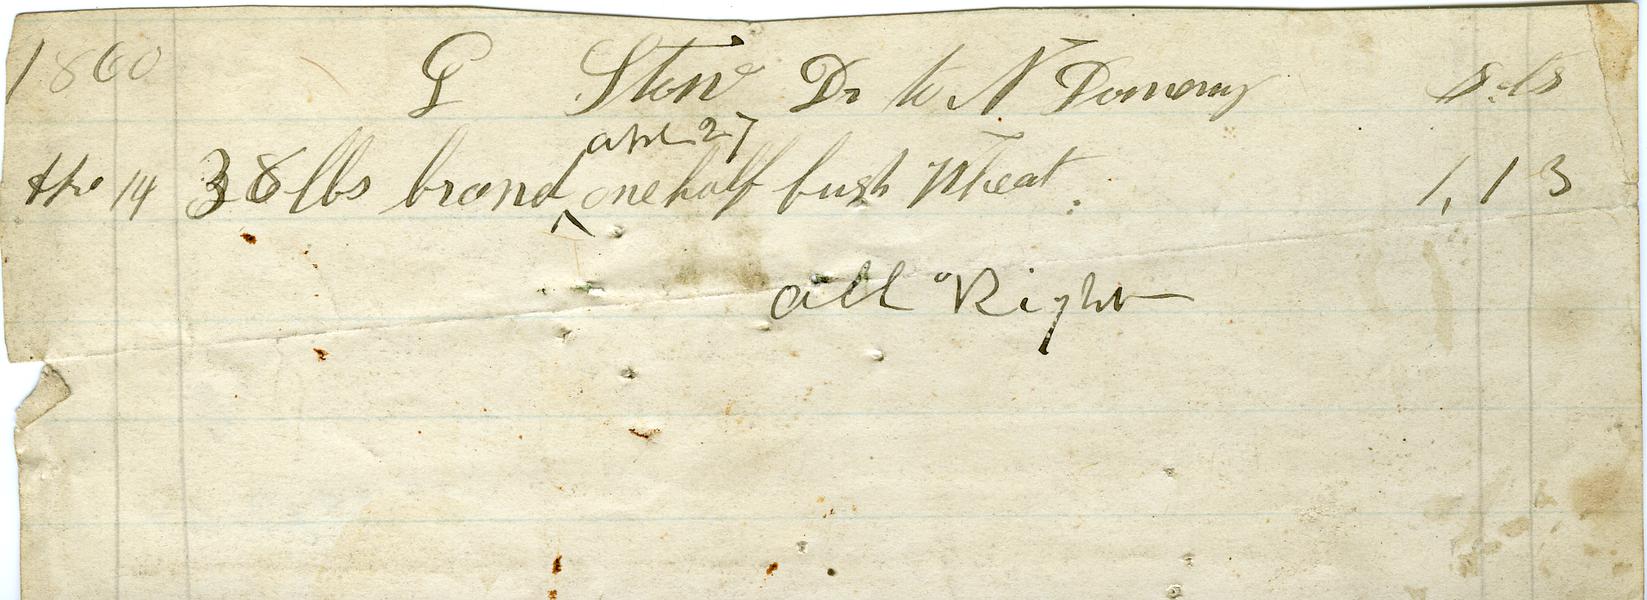 1860 G Stone Dr to N Domeny $ cts
Apr 27
14 38 lbs brand one half bush Wheat 1,13
all Right